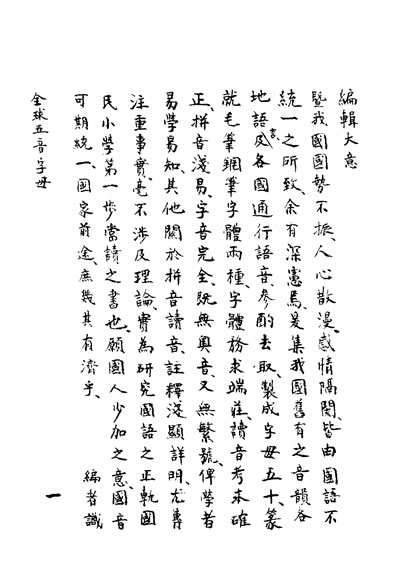 編輯大意
暨我國國勢不振、人心散漫、感情隔閡、皆由國語不
統一之所致、余有深憲焉、爰集我國舊有之音韻各
地語言及各國通行語音、參酌去取、製成字母五十、篆
就毛筆鋼筆字體兩種、字體務求端莊、讀音考求確
正、拼音淺易、字音完全、既無奧音、又無繁號、俾學者
易學易知、其他關於拼音讀音、註釋淺顯詳明、尤專
注重事實、毫不涉及理論、實為研究國語之正軌國
民小學第一步當讀之書也、願國人少加之意、國音
可期統一、國家前途、庶幾其有濟乎、
編者識
全球五音字母
一